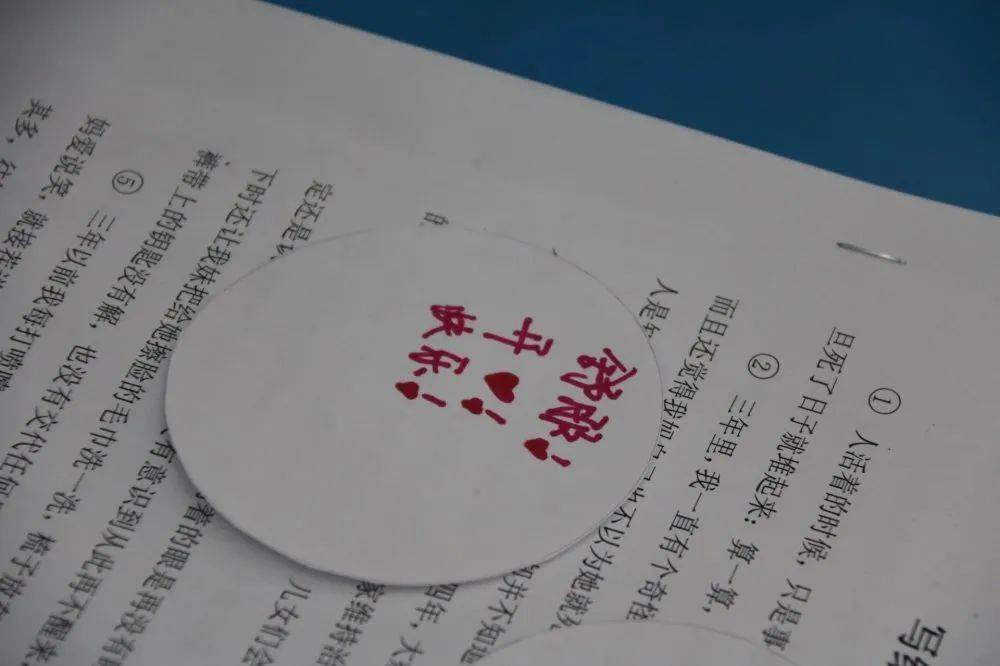 写
① 人活着的时候，只是事
且死了日子就堆起来：算一算，
② 三年里，我一直有个奇怪
而且还觉得我
不以为她就
人是
并不知道
四年，大
家维持治
儿女们会
定还是
着的眼是再没有
有意识到从此再不醒来，
下时还让我妹把给她擦脸的毛巾洗一洗，梳子放在
裤带上的钥匙没有解，也没有交代任何
⑤ 三年以前我每打喷嚏
妈爱说笑，就接着
其多，
舒欣♥！
开♥！
快乐♥！